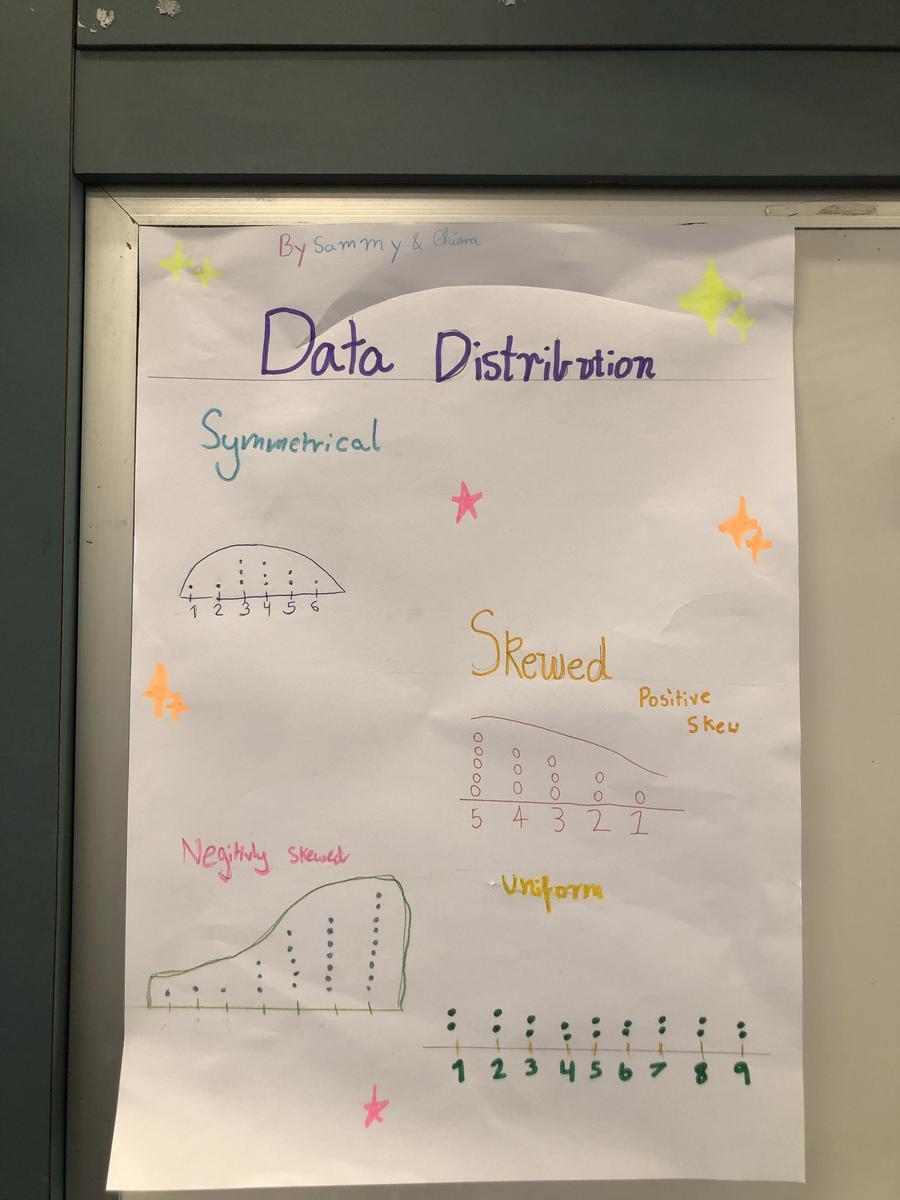 By Sammy & Chiara
Data Distribution
Symmetrical
1 2 3 4 5 6
Skewed
Positive
Skew
5 4 3 2 1
Negitivly Skewed
Uniform
1 2 3 4 5 6 7 8 9